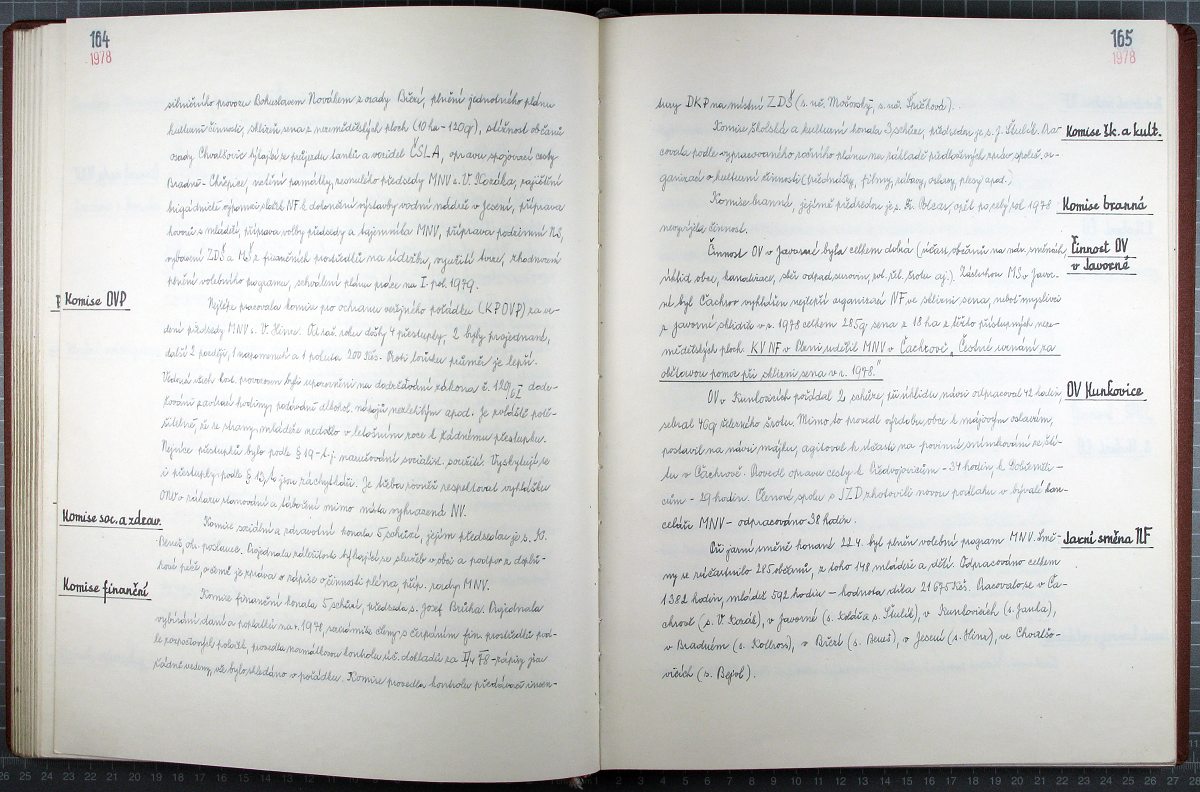 164
1978
silničního provozu Bohuslavem Novákem z osady Bižeí, plnění jednotného plánu
kulturní činnosti, sklizeň sena z nezemědělských ploch (10 ha - 120 q), stížnost občanů
osady Chvalšovic týkající se průjezdu tanků a vozidel ČSLA, opravu spojovací cesty
Bradné - Chřepice, uctění památky zesnulého předsedy MNV s. V. Koráka, zajištění
brigádnické výpomoci složek NF k dokončení výstavby vodní nádrže v Jesení, příprava
hovorů s mládeží, příprava volby předsedy a tajemníka MNV, příprava podzimní NS,
vybavení ZDŠ a MŠ z finančních prostředků na údržbu, využití dvora, zhodnocení
plnění volebního programu, schválení plánu práce na I. pol. 1979.
Komise OVP
Nejlépe pracovala komise pro ochranu veřejného pořádku (KPOVP) za ve-
dení předsedy MNV s. V. Hinse. Oproti roku došly 4 přestupky; 2 byly projednané,
další 2 později, 1 napomenutí a 1 pokuta 200 Kčs. Proti loňsku průměr je lepší.
Vedoucí všech host. provozoven byli upozorněni na dodržování zákona č. 120/62 dodr-
žování zavírací hodiny, podávání alkohol. nápojů nezletilým apod. Je potěši-
telné, že ze strany mládeže nedošlo v letošním roce k žádnému přestupku.
Nejvíce přestupků bylo podle § 19 - t.j. narušování socialist. soužití. Vyskytují se
i přestupky podle § 13, t. jsou záchytkáři. Je třeba rovněž respektovat vyhlášku
ONV o zákazu stanování a táboření mimo místa vyhrazená NV.
Komise soc. a zdrav.
Komise sociální a zdravotní konala 5 schůzí, jejím předsedou je s. K.
Beneš, ob. poslanec. Projednala záležitosti týkající se služeb v obci a podpor z doplň-
kové péče, o čemž je zpráva v zápise o činnosti pléna, příp. rady MNV.
Komise finanční
Komise finanční konala 5 schůzí, předseda s. Josef Brůha. Projednala
vybírání daní a poplatků na r. 1978, seznámila členy s čerpáním fin. prostředků pod-
le rozpočtových položek, provedla namátkovou kontrolu úč. dokladů za II/4 78 - zápisy jsou
řádně vedeny, vše bylo shledáno v pořádku. Komise provedla kontrolu předávací inven-
165
1978
tury DKP na místní ZDŠ (s. uč. Močovský, s. uč. Špičková).
Komise šk. a kult.
Komise školská a kulturní konala 3 schůze, předsedou je s. J. Štulík. Pra-
covala podle vypracovaného ročního plánu na základě předložených zpráv společ. or-
ganizací o kulturní činnosti (přednášky, filmy, zábavy, oslavy, plesy apod.)
Komise branná
Komise branná, jejímž předsedou je s. Fr. Polcar, opět po celý rok 1978
nevyvíjela činnost.
Činnost OV
v Javorné
Činnost OV v Javorné byla celkem dobrá (účast občanů na ndr. směnách,
úklid obce, kanalizace, sběr odpad. surovin, pol. úč. stolu aj.). Zásluhou MS v Javor-
né byl Čachrov vyhlášen nejlepší organizací NF ve sklizni sena, neboť myslivci
z Javorné sklidili v r. 1978 celkem 285 q sena z 18 ha z těžko přístupných neze-
mědělských ploch. KV NF v Plzni udělil MNV v Čachrově „Čestné uznání za
obětavou pomoc při sklizni sena v r. 1978."
OV Kunkovice
OV v Kunkovicích pořádal 2 schůze, při úklidu návsi odpracoval 42 hodin,
sebral 40 q železného šrotu. Mimo to provedl výzdobu obce k májovým oslavám,
postavil na návsi májku, agitoval k účasti na povinné snímkování ze ští-
tu v Čachrově. Provedl opravu cesty k Předvojovicům - 34 hodin, k Zoběmíti-
cům - 29 hodin. Členové spolu s JZD zhotovili novou podlahu v bývalé kan-
celáři MNV - odpracováno 38 hodin.
Jarní směna NF
Při jarní směně konané 22.4. byl plněn volební program MNV. Smě-
ny se zúčastnilo 285 občanů, z toho 148 mládeže a dětí. Odpracováno celkem
1382 hodin, mládež 592 hodin - hodnota díla 21 675 Kčs. Pracovalo se v Ča-
chrově (s. V. Korák), v Javorné (s. Kolář a s. Štulík), v Kunkovicích (s. Jaula),
v Bradném (s. Kollros), v Bižeí (s. Beneš), v Jesení (s. Hinse), ve Chvalšo-
vicích (s. Bejvl).